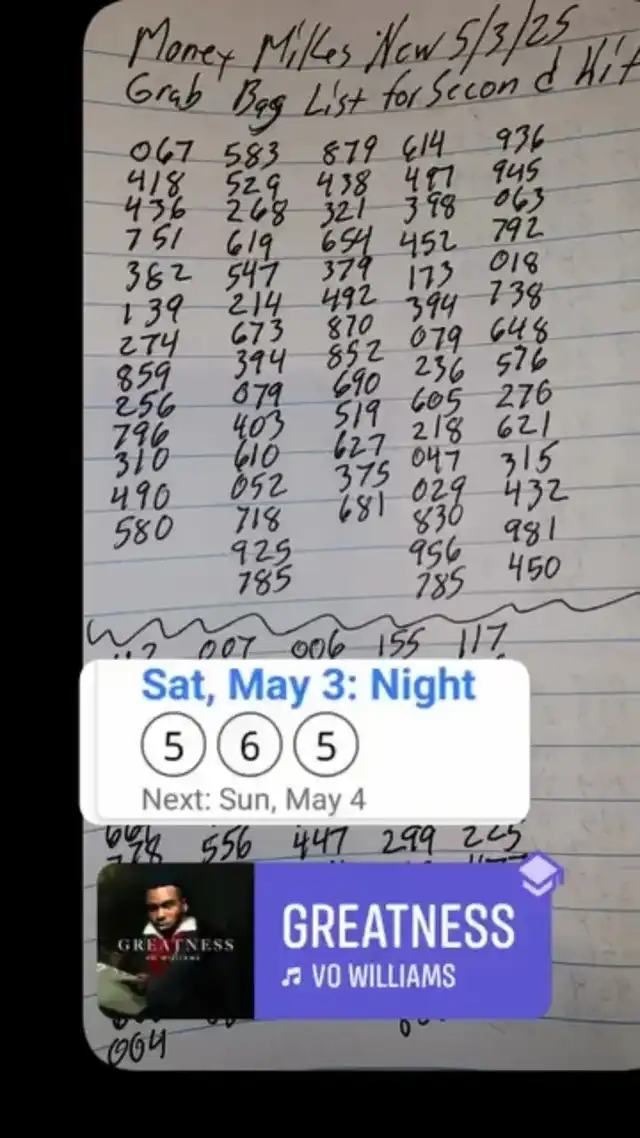 Money Mikes New 5/3/25
Grab Bag List for Second Hit
067 583 879 614 936
418 529 438 497 945
436 268 321 398 063
751 619 654 452 792
382 547 379 173 018
139 214 492 394 738
274 673 870 079 648
859 394 852 236 576
256 079 690 605 276
796 403 519 218 621
310 610 627 047 315
490 052 375 029 432
580 718 681 830 981
925 956 450
785 785
007 006 155 117
Sat, May 3: Night
5 6 5
Next: Sun, May 4
556 447 299 225
778
GREATNESS
VO WILLIAMS
GREATNESS
VO WILLIAMS
004